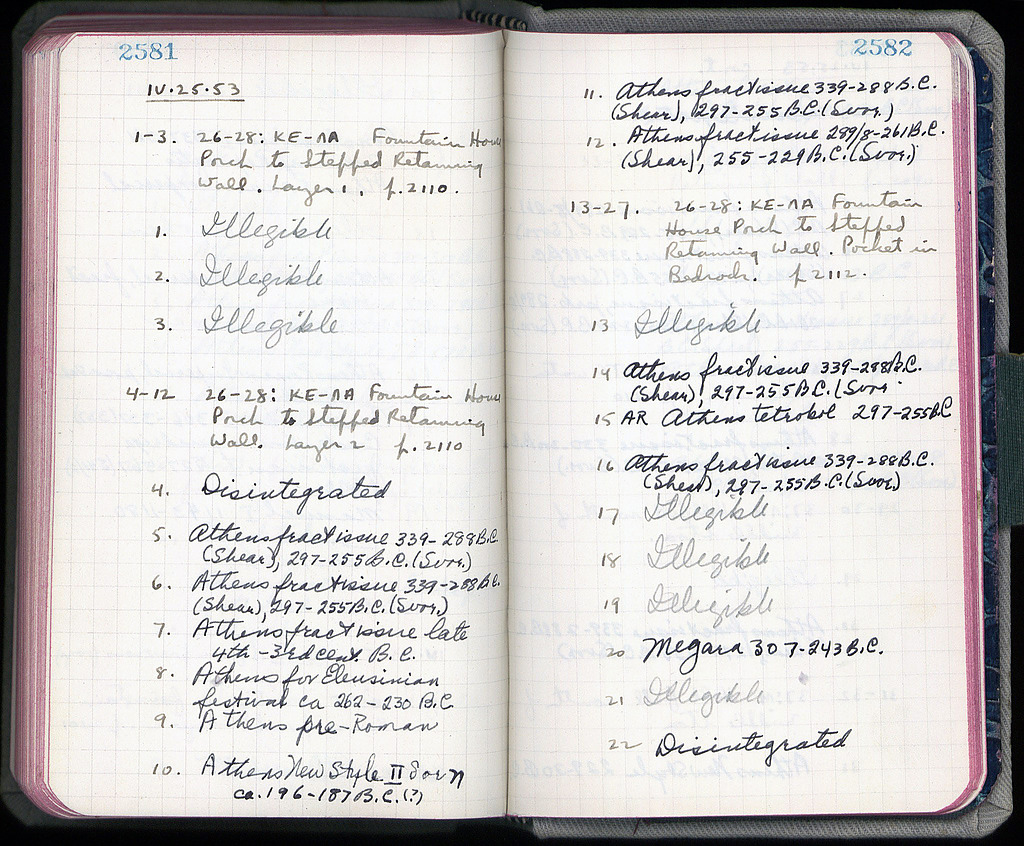 2581
IV.25.53
1-3. 26-28: ΚΕ-ΛΑ Fountain House
Porch to Stepped Retaining
Wall. Layer 1. p. 2110.
1. Illegible
2. Illegible
3. Illegible
4-12 26-28: ΚΕ-ΛΑ Fountain House
Porch to Stepped Retaining
Wall. Layer 2 p. 2110
4. Disintegrated
5. Athens fract issue 339-288 B.C.
(Shear), 297-255 B.C. (Svor.)
6. Athens fract issue 339-288 B.C.
(Shear), 297-255 B.C. (Svor.)
7. Athens fract issue late
4th - 3rd cent. B.C.
8. Athens for Eleusinian
festival ca 262-230 B.C.
9. Athens pre-Roman
10. Athens New Style II
ca. 196-187 B.C. (?)
2582
11. Athens fract issue 339-288 B.C.
(Shear), 297-255 B.C. (Svor.)
12. Athens fract issue 289/8-261 B.C.
(Shear), 255-229 B.C. (Svor.)
13-27. 26-28: ΚΕ-ΛΑ Fountain
House Porch to Stepped
Retaining Wall. Pocket in
Bedrock. p. 2112.
13 Illegible
14 Athens fract issue 339-288 B.C.
(Shear), 297-255 B.C. (Svor.
15 AR Athens tetrobol 297-255 B.C
16 Athens fract issue 339-288 B.C.
(Shear), 297-255 B.C. (Svor.)
17 Illegible
18 Illegible
19 Illegible
20 Megara 307-243 B.C.
21 Illegible
22 Disintegrated